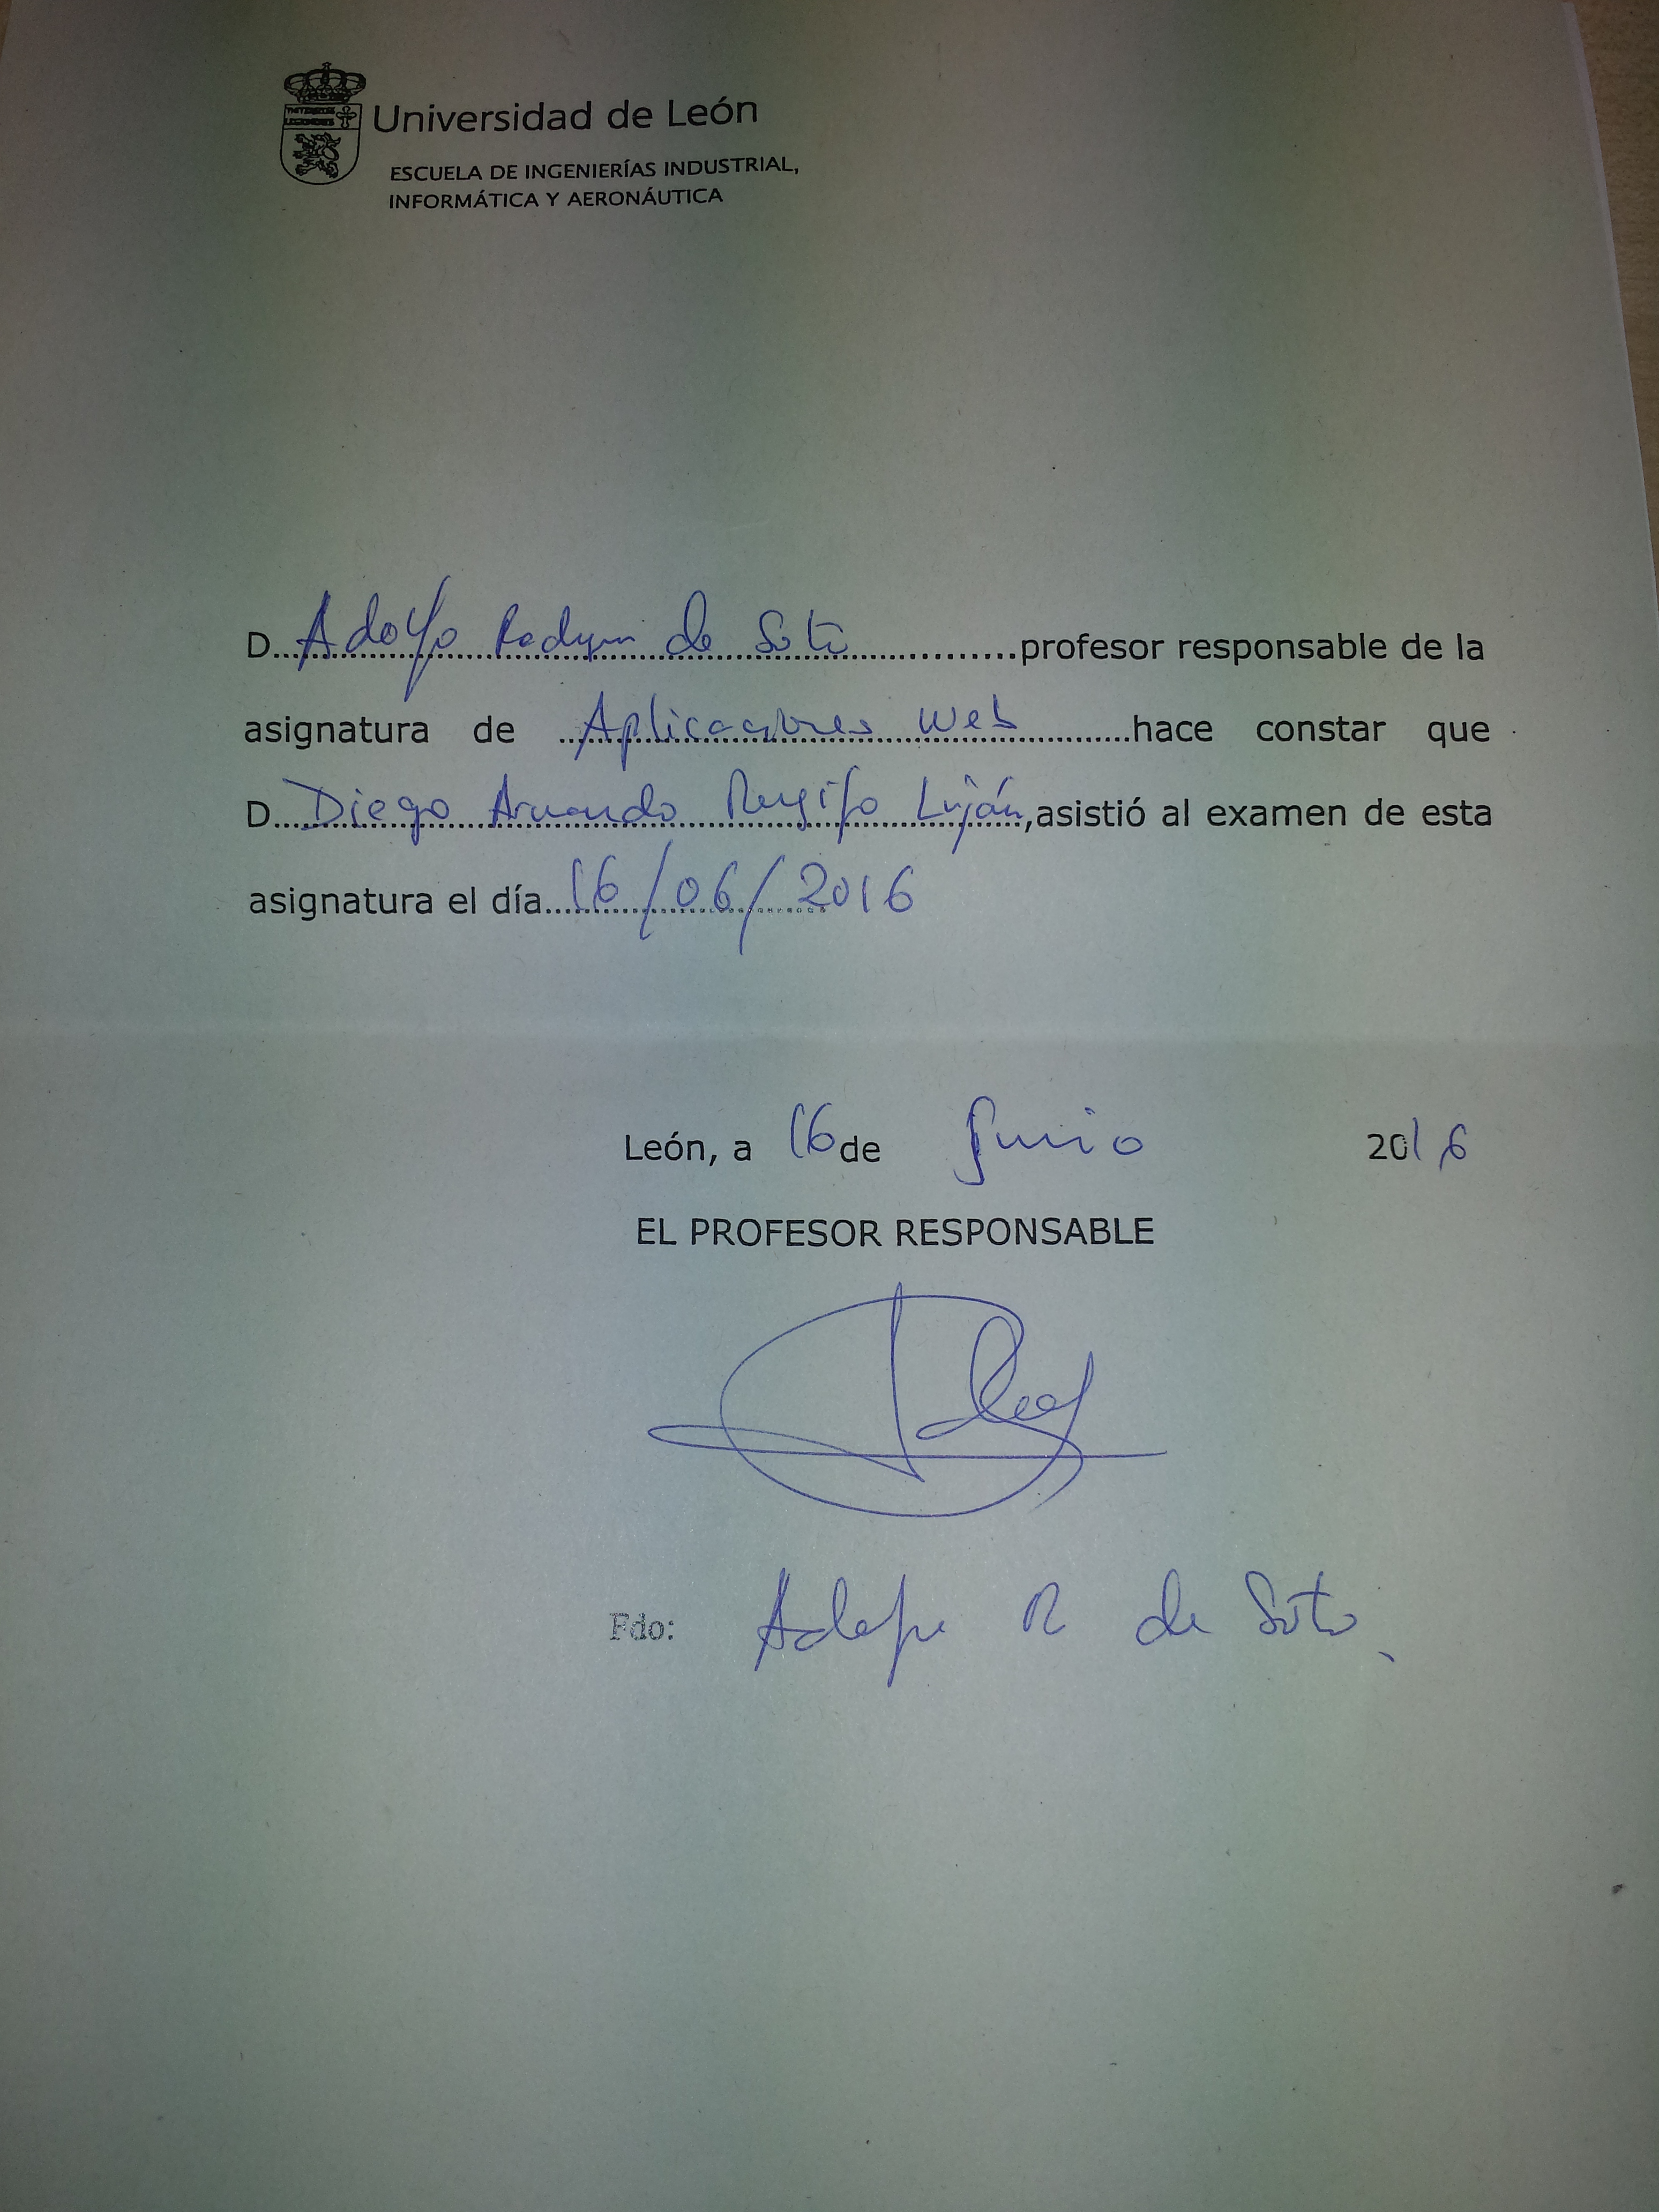 Universidad de León
ESCUELA DE INGENIERÍAS INDUSTRIAL,
INFORMÁTICA Y AERONÁUTICA
D....Adolfo de Soto....profesor responsable de la
asignatura de ...Aplicaciones Web....hace constar que
D....Diego Armando Rengifo Luján,asistió al examen de esta
asignatura el día...16/06/2016
León, a 16 de Junio 2016
EL PROFESOR RESPONSABLE
Fdo: Adolfo R de Soto